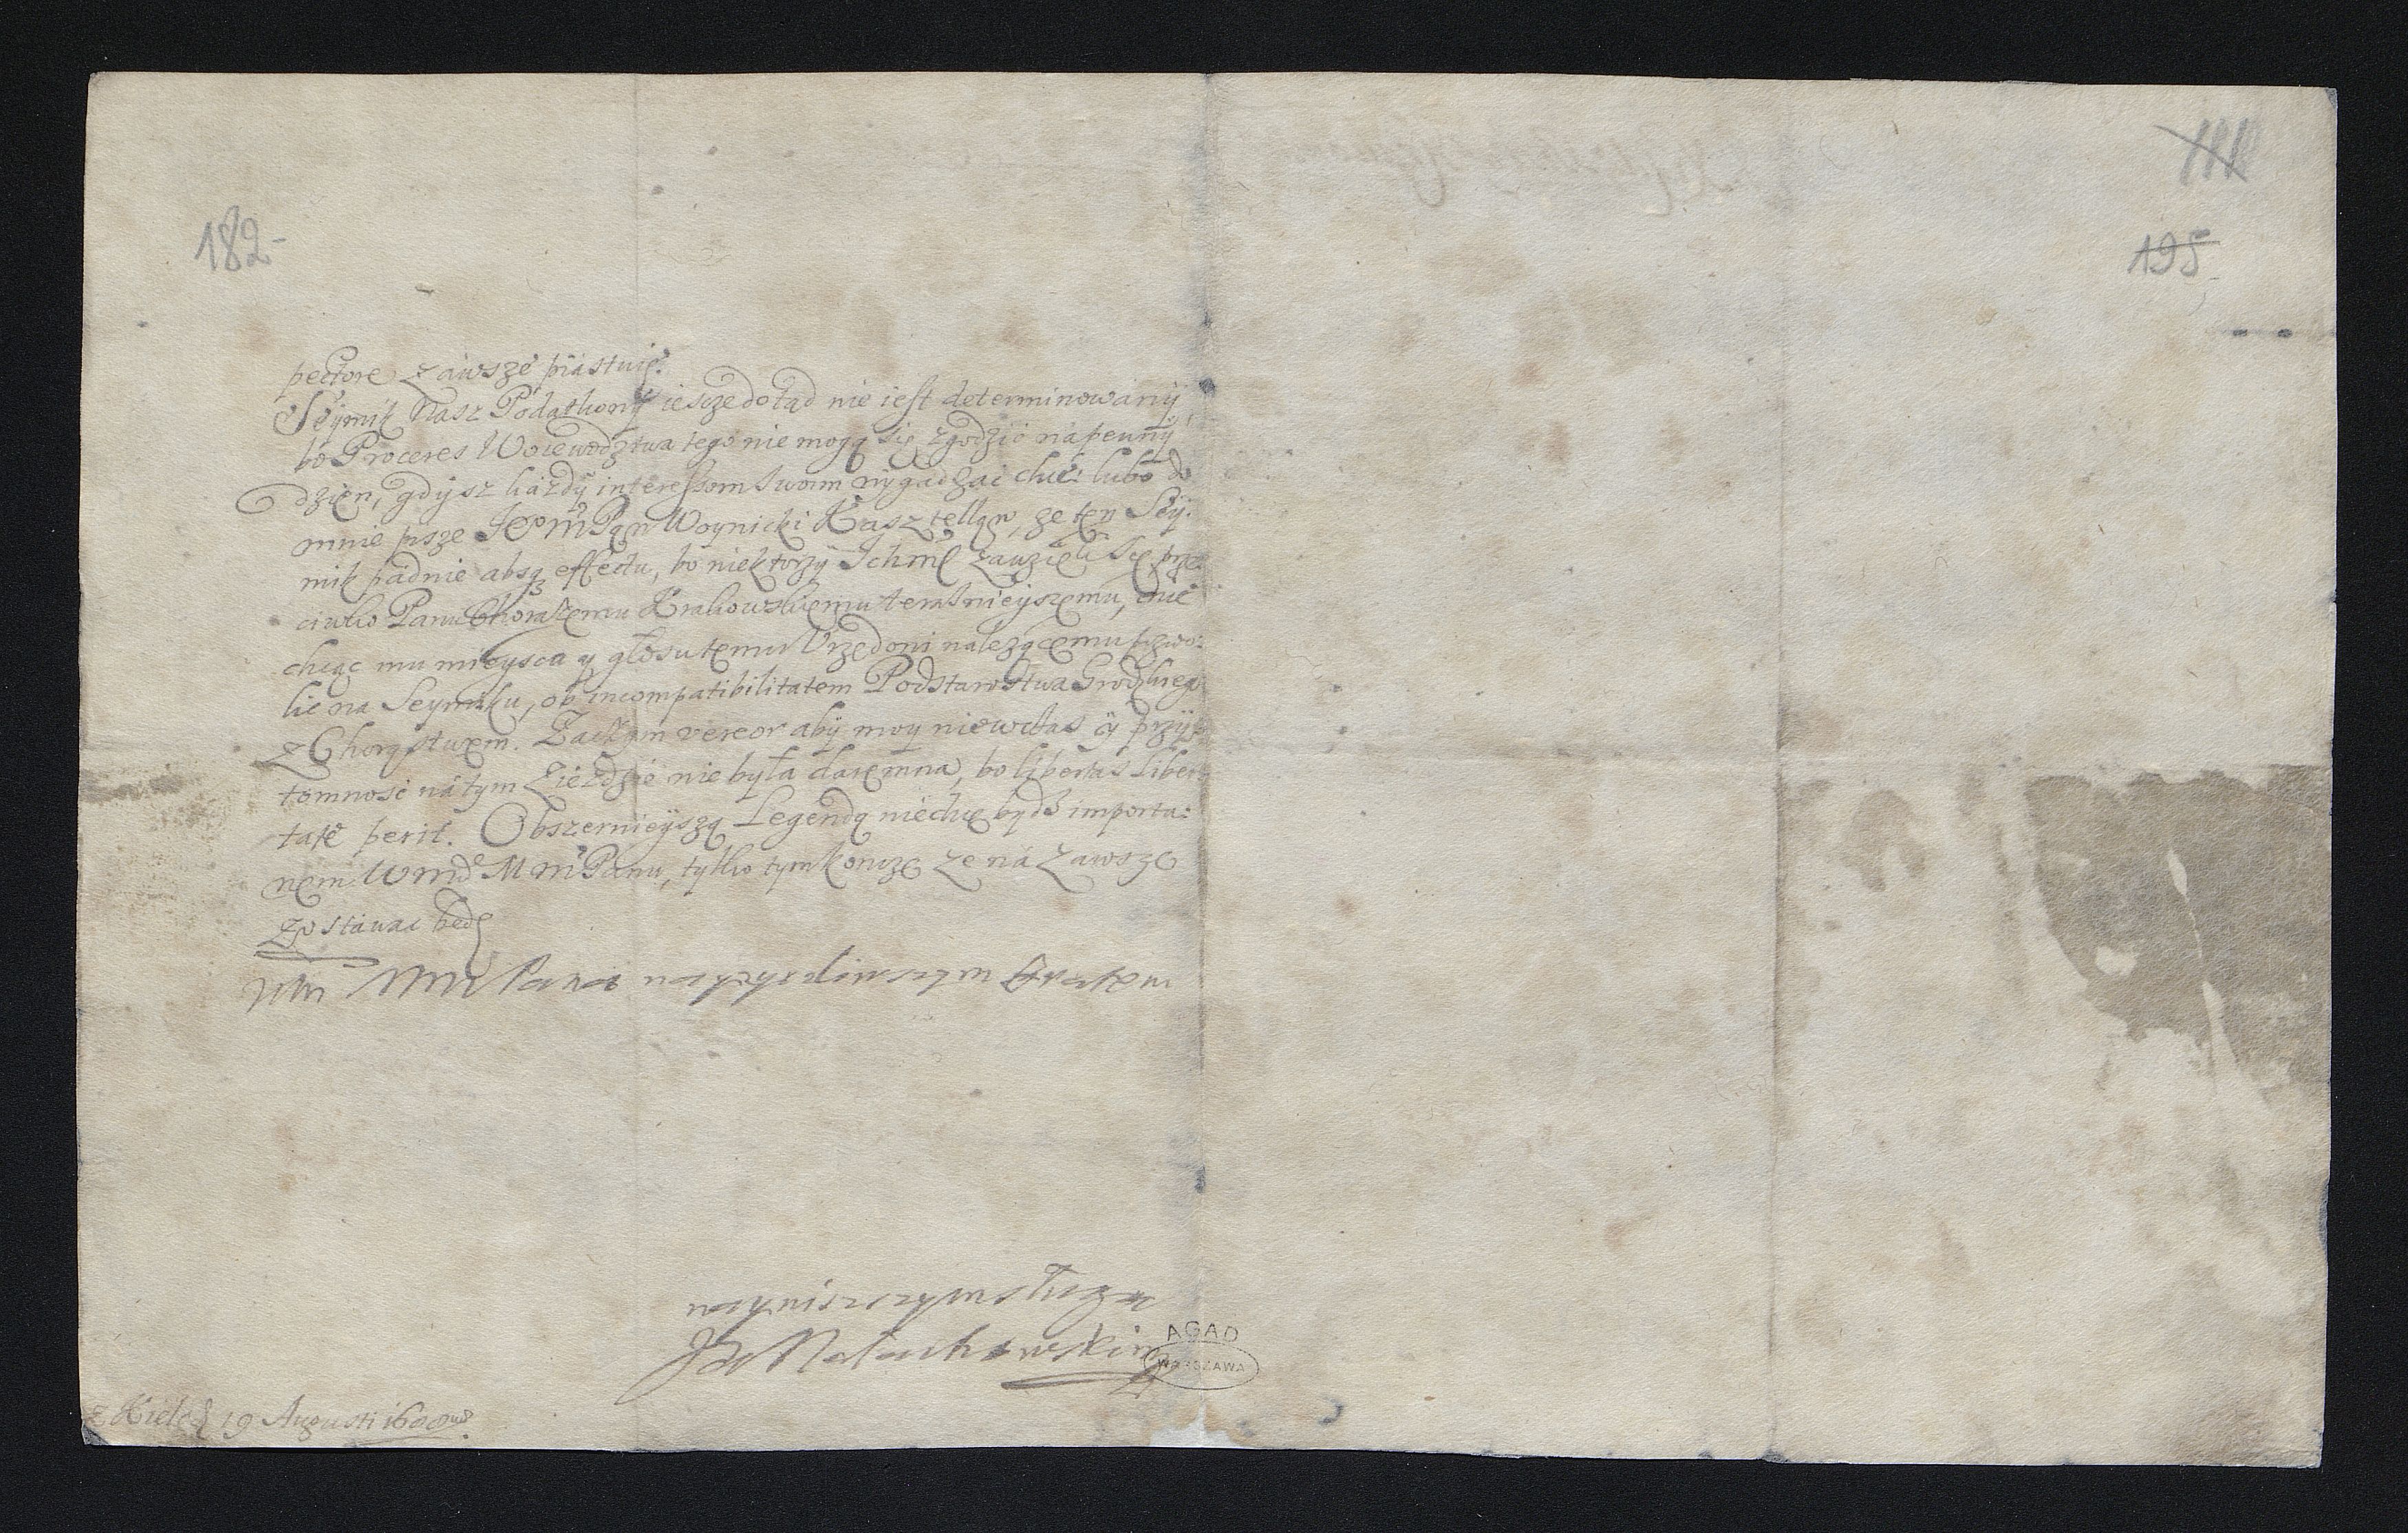 182
195
pectore zawsze piastuię.
Seymik Nasz Podatkowy ieszcze dotąd nie iest determinowany
bo Proceres Woiewodztwa tego nie mogą się zgodzić na pewny
dzien, gdysz każdy interessom swoim wygadzać chce: lubo do
mnie pisze Jeo Pan Woynicki Kasztellan, że ten Sey:
mik padnie absq effectu, bo niektorzy Ichm zawzięli się prze:
ciwko Panu Chorążemu Krakowskiemu terasnieyszemu, nie
chcąc mu mieysca y głosu temu Vrzędowi należącemu pozwo:
lic na Seymiku, ob incompatibilitatem Podstarostwa Grodzkiego
z Chorąstwem. Zaczym vereor aby moy niewczas y przy:
tomność na tym Zieździe nie była daremna, bo libertas liber
tate perit. Obszernieyszą Legendą niechcę bydź importu:
nem Wmd M m Panu, tylko tym kończę że na zawsze
zostawac będę
Wm Mm Pana nayzyczliwszym bratem
nayniszszym sługą
Malachowski
AGAD
WARSZAWA
z Kielc 19 Augusti